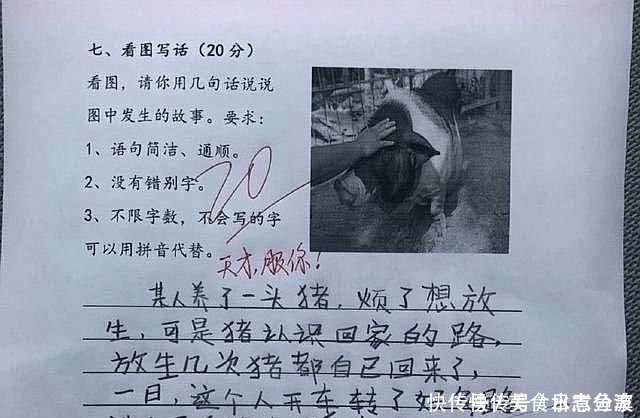 七、看图写话（20分）
看图，请你用几句话说说
图中发生的故事。要求：
1、语句简洁、通顺。
2、没有错别字。
3、不限字数，不会写的字
可以用拼音代替。
20
天才，服你！
某人养了一头猪，烦了想放
生，可是猪认识回家的路，
放生几次猪都自己回来了，
一日，这个人开车转了